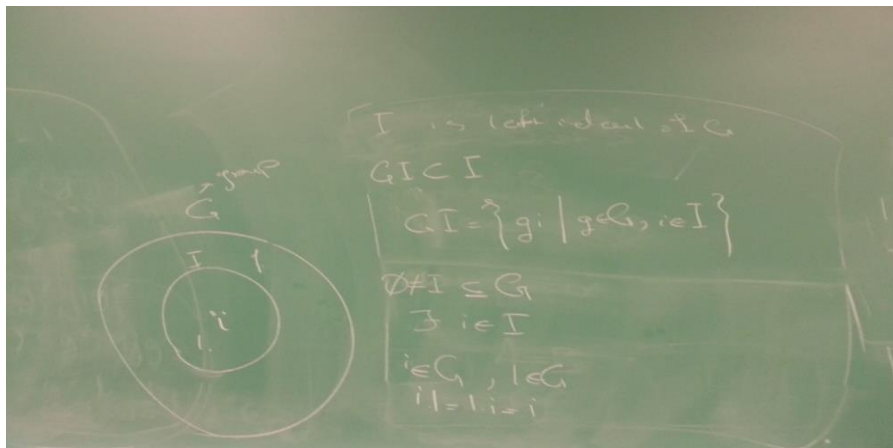 group
G
I 1
i
1
I is left ideal of G
GI ⊂ I
GI = { gi | g∈G, i∈I }
∅≠I ⊆ G
∃ i∈I
i∈G, 1∈G
i.1=1.i=i